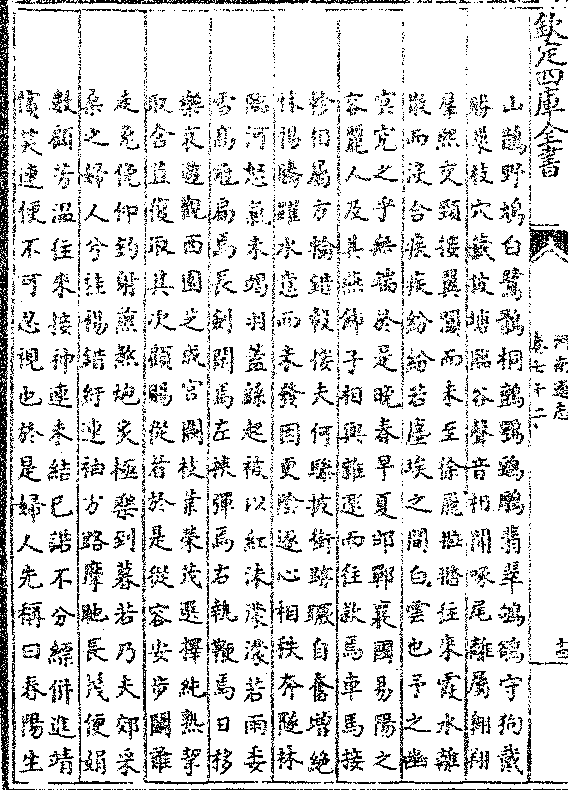 欽定四庫全書
河南通志
卷七十二
山鵲野鳩白鷺鶻桐鸇鶚鷂鵰翡翠鴝鵒守狗戴
勝巢枝穴藏被塘臨谷聲音相聞喙尾離屬翱翔
羣熙交頸接翼闒而未至徐飛㩉㩉往來霞水離
散而沒合疾疾紛紛若塵埃之間白雲也予之幽
冥究之乎無端於是晚春早夏邯鄲襄國易陽之
容麗人及其燕飾子相與雜遝而往欵焉車馬接
軫相屬方輪錯轂接夫何驂披銜跡蹶自奮增絕
怵惕騰躍水意而未發因更陰逐心相秩奔隧林
臨河怒氣未竭羽蓋繇起被以紅沫濛濛若雨委
雪高冠扁焉長劍閑焉左挾彈焉右執鞭焉日移
樂衰遊觀西園芝成宮闕枝葉榮茂選擇純熟挈
取含苴復取其次顧賜從者於是從容安步鬬雞
走兔俛仰釣射煎熬炮炙極樂到暮若乃夫郊采
桑之婦人兮袿裼錯紆連袖方路摩貤長髮便娟
數顧芳溫往來接神連未結已諾不分縹併進靖
儐笑連便不可忍視也於是婦人先稱曰春陽生